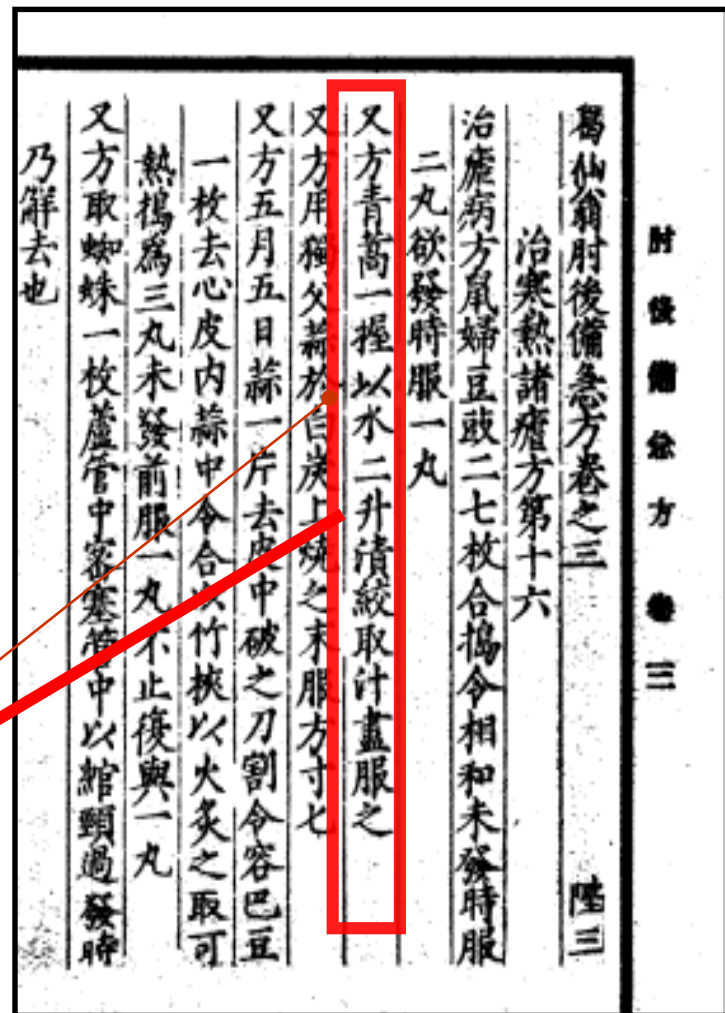 肘後備急方 卷三
葛仙翁肘後備急方卷之三 陞三
治寒熱諸瘧方第十六
治瘧病方鼠婦豆豉二七枚合搗令相和未發時服
二丸欲發時服一丸
又方青蒿一握以水二升漬絞取汁盡服之
又方用獨父蒜於白炭上燒之末服方寸匕
又方五月五日蒜一片去皮中破之刀割令容巴豆
一枚去心皮內蒜中令合以竹挾以火炙之取可
熱搗爲三丸未發前服一丸不止復與一丸
又方取蜘蛛一枚蘆管中密塞管中以綰頸過發時
乃解去也